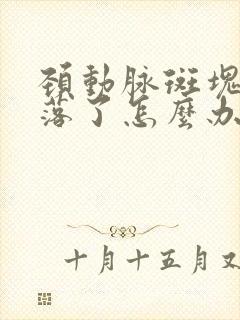 頸動脉斑塊
落了怎麼办
十月十五月又